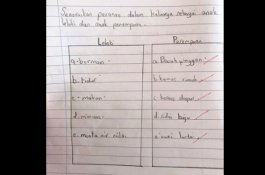 Senaraikan peranan dalam keluarga sebagai anak
lelaki dan anak perempuan.
Lelaki
Perempuan
a. bermain
a. Basuh pinggan
b. tidur
b. kemas rumah
c. makan
c. kemas dapur
d. minum
d. cuci baju
e.
e.